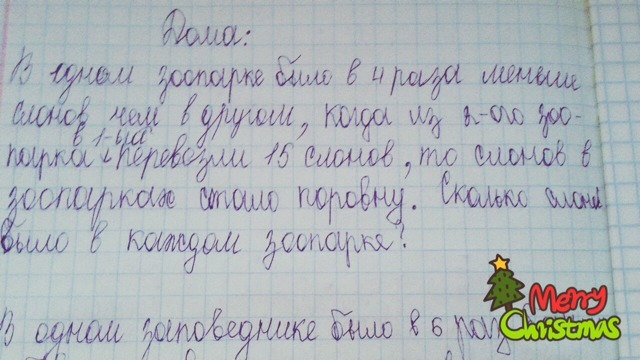 Дома:
В одном зоопарке было в 4 раза меньше
слонов чем в другом, когда из 2-ого зоо-
в 1-ый
парка перевозли 15 слонов, то слонов в
зоопарках стало поровну. Сколько слонов
было в каждом зоопарке?
В одном заповеднике было в 6 раз
Merry
Christmas